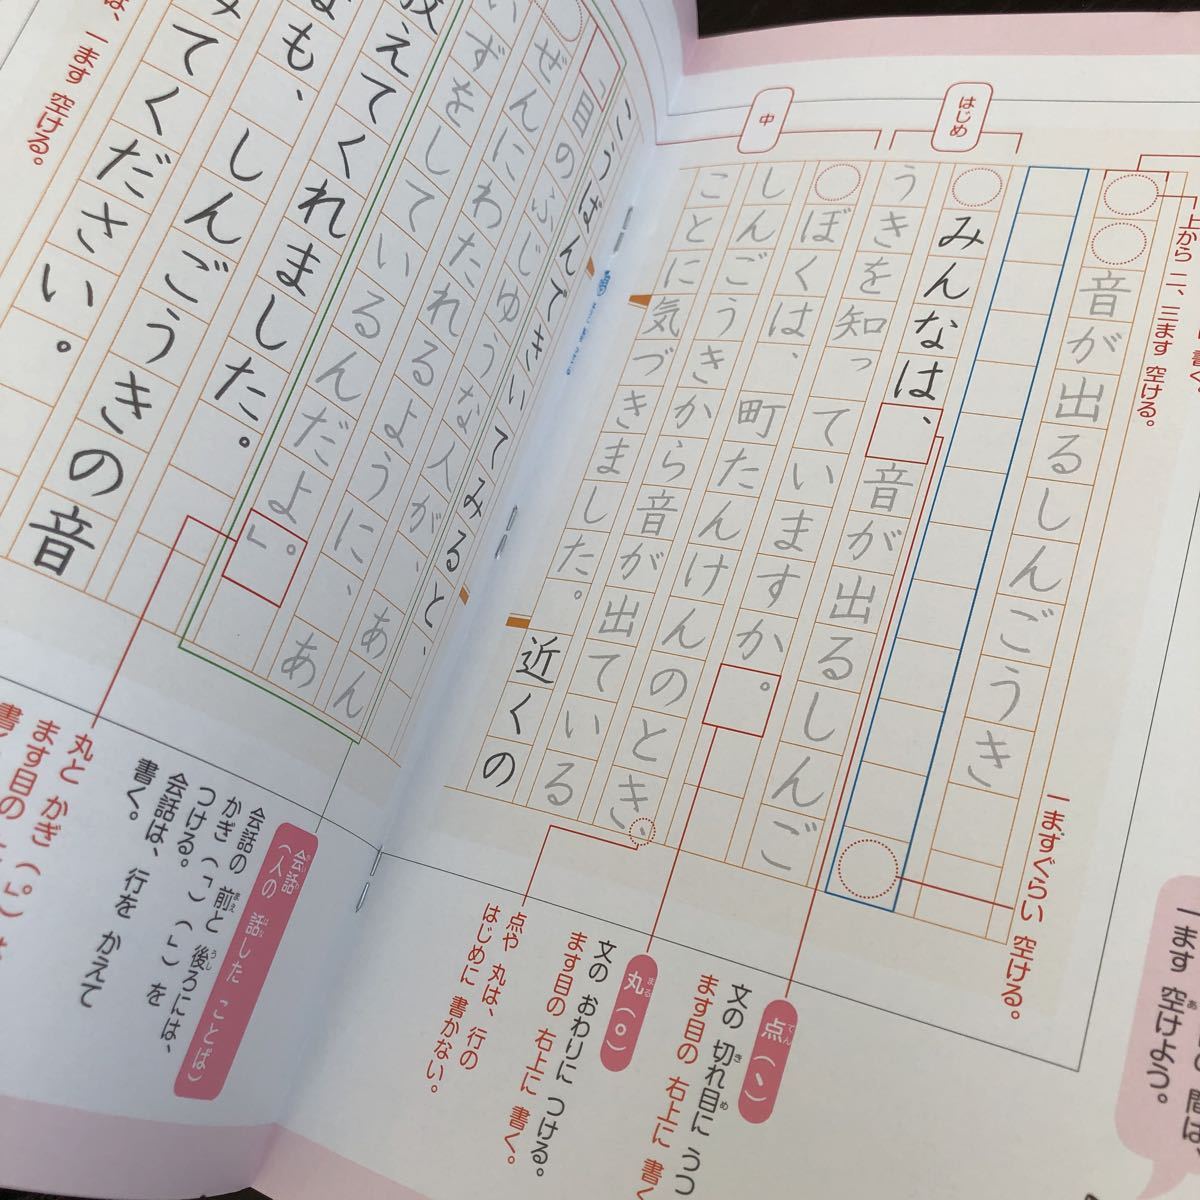 上から 二、三ます 空ける。
はじめ
中
音が出るしんごうき
みんなは、音が出るしんご
うきを知っていますか。
ぼくは、町たんけんのとき、
しんごうきから音が出ている
ことに気づきました。近くの
こうばんできいてみると、
「目のふじゆうな人が、あん
ぜんにわたれるように、あ
いずをしているんだよ。」
えてくれました。
も、しんごうきの音
てください。
一ます 空ける。
一ますぐらい 空ける。
一ます 空けよう。
点(、)
文の 切れ目に うつ
ます目の 右上に 書く
丸(。)
文の おわりに つける。
ます目の 右上に 書く。
点や 丸は、行の
はじめに 書かない。
会話(人の 話した ことば)
会話の 前と 後ろには、
かぎ(「)(」)を
つける。
会話は、行を かえて
書く。
丸と かぎ(。」)は
ます目の